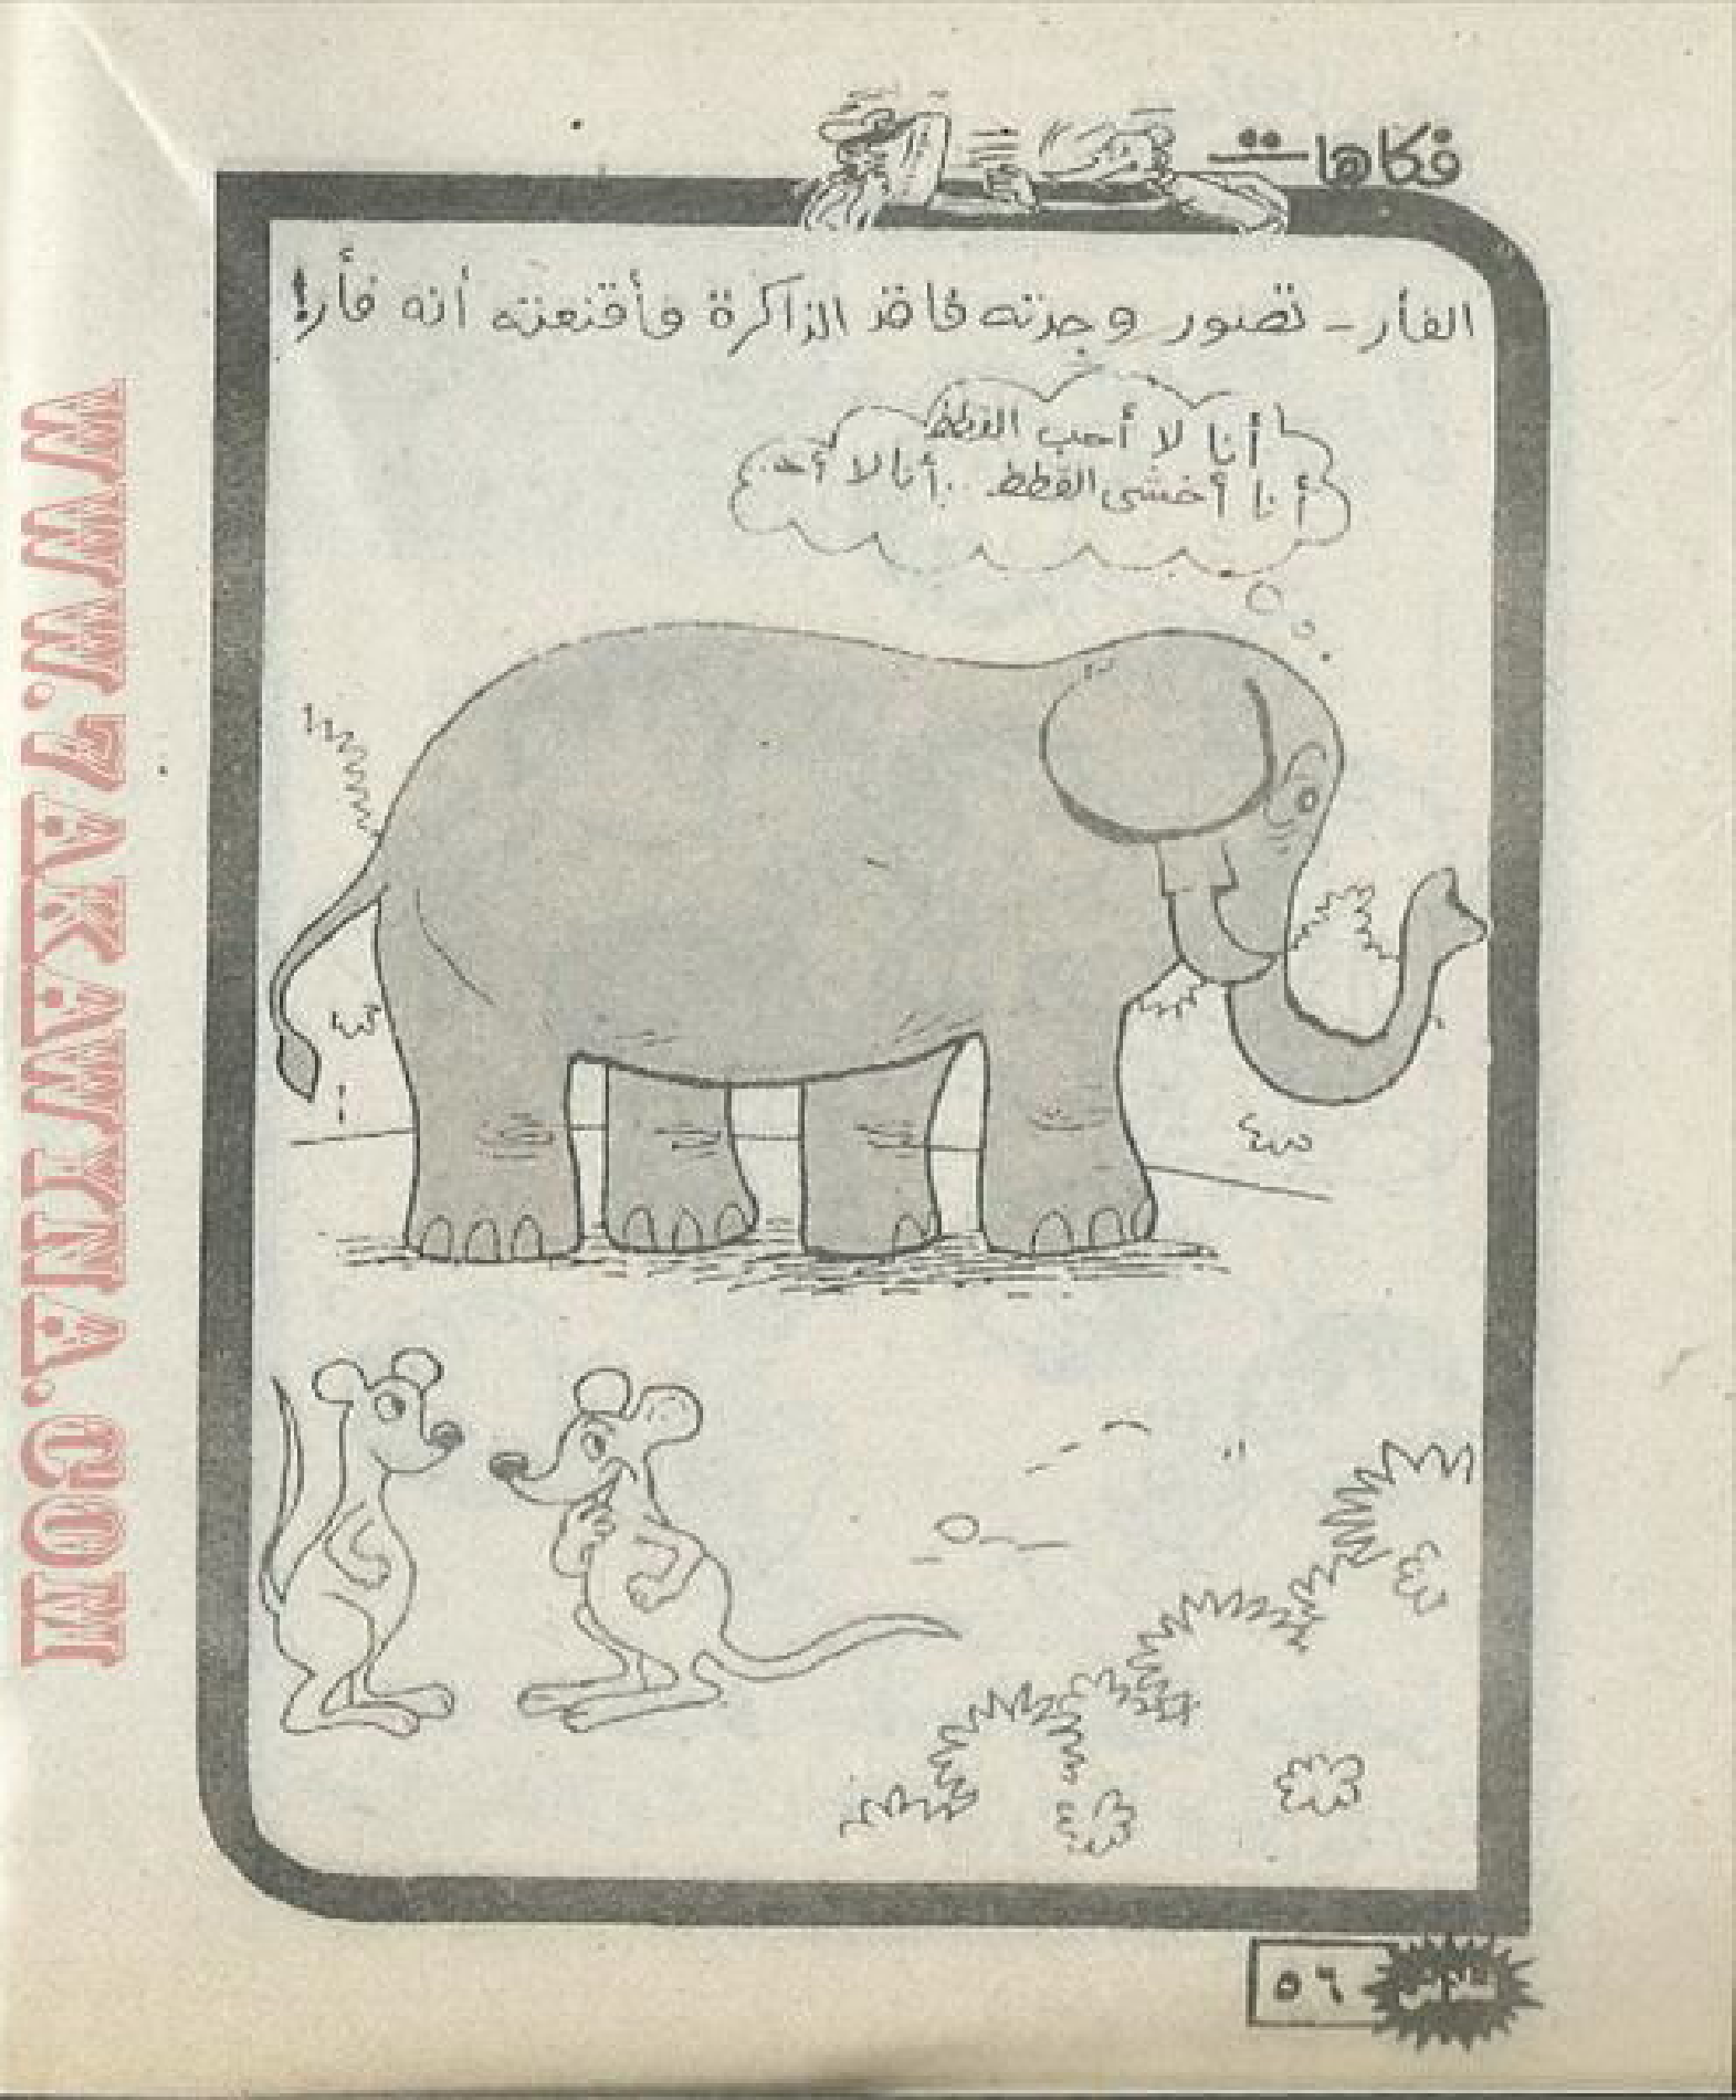 فكاهات
الفأر - تصور وجدته فاقد الذاكرة فأقنعته أنه فأر!
أنا لا أحب القطط
أنا أخشى القطط .. أنا لا أحـ..
٥٦
WWW.7AKAWINA.COM